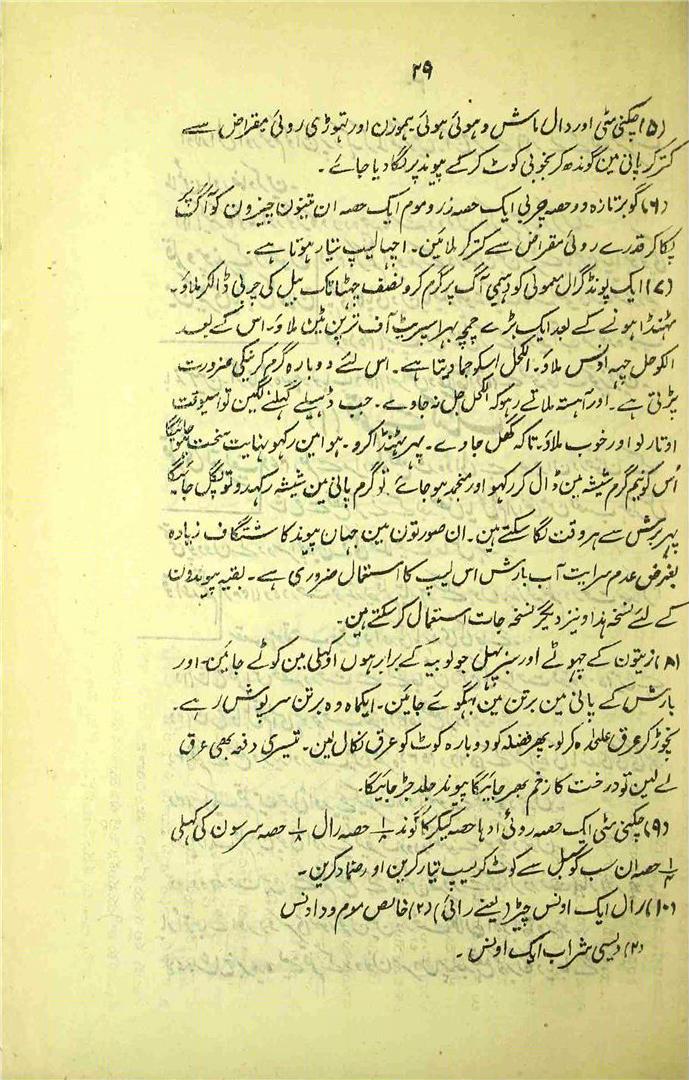 ۲۹
(۵) چکنی مٹی اور دال ماش دھوئی ہوئی ہموزن اور تہوڑی روئی مقراض سے
کتر کر پانی مین گوندھ کر بخوبی کوٹ کر کے پیوند پر لگا دیا جائے ۔
(۶) گوبر تازہ دو حصہ چربی ایک حصہ زرد موم ایک حصہ ان تینون چیزون کو آگ پر
پکا کر قدرے روئی مقراض سے کتر کر ملائین ۔ اچہا لیپ تیار ہوتا ہے ۔
(۷) ایک پونڈ گرال معمولی کو دہیمی آگ پر گرم کرو نصف چہٹانک بیل کی چربی ڈالکر ملاؤ ۔
ٹہنڈا ہونے کے بعد ایک بڑے چمچہ بہرا سپرٹ آف ترپن ٹین ملاؤ ۔ اس کے بعد
الکوحل چہہ اونس ملاؤ ۔ الکحل اسکو جما دیتا ہے ۔ اس لئے دوبارہ گرم کرنیکی ضرورت
پڑتی ہے ۔ اور آہستہ ملاتے رہو کہ الکحل جل نہ جاوے ۔ جب ڈہیلے گہلنے لگین تو اسیوقت
اوتار لو اور خوب ملاؤ ۔ تاکہ گھل جاوے ۔ پہر ٹہنڈا کرو ۔ ہوا مین رکہو نہایت سخت ہو جائیگا
اُس کو نیم گرم شیشہ مین ڈال کر رکہو اور منجمد ہو جائے تو گرم پانی مین شیشہ رکہدو تو پگل جائیگا
پہر برش سے ہر وقت لگا سکتے ہین ۔ ان صورتون مین جہان پیوند کا شگاف زیادہ
بغرض عدم سرایت آب بارش اس لیپ کا استعمال ضروری ہے ۔ بقیہ پیوندون
کے لئے نسخہ ہذا و نیز دیگر نسخہ جات استعمال کر سکتے ہین ۔
(۸) زیتون کے چہوٹے اور سبز پہل جو لوبیہ کے برابر ہوں اوکہلی مین کوٹے جائین ۔ اور
بارش کے پانی مین برتن مین بہگوئے جائین ۔ ایکماہ وہ برتن سرپوش رہے ۔
نچوڑ کر عرق علیحدہ کر لو ۔ پھر فضلہ کو دوبارہ کوٹ کو عرق نکال لین ۔ تیسری دفعہ بھی عرق
لے لین تو درخت کا زخم بھر جائیگا پیوند جلد جڑ جائیگا ۔
(۹) چکنی مٹی ایک حصہ روئی ادہا حصہ کیکر کا گوند ۱/۸ حصہ رال ۱/۸ حصہ سرسون کی کہلی
حصہ ان سب کو تیل سے کوٹ کر لیپ تیار کرین اور ضماد کرین ۔
(۱۰) رال ایک اونس چیڑ (یعنے رانی) (۲) خالص موم دو اونس
(۲) دیسی شراب ایک اونس ۔